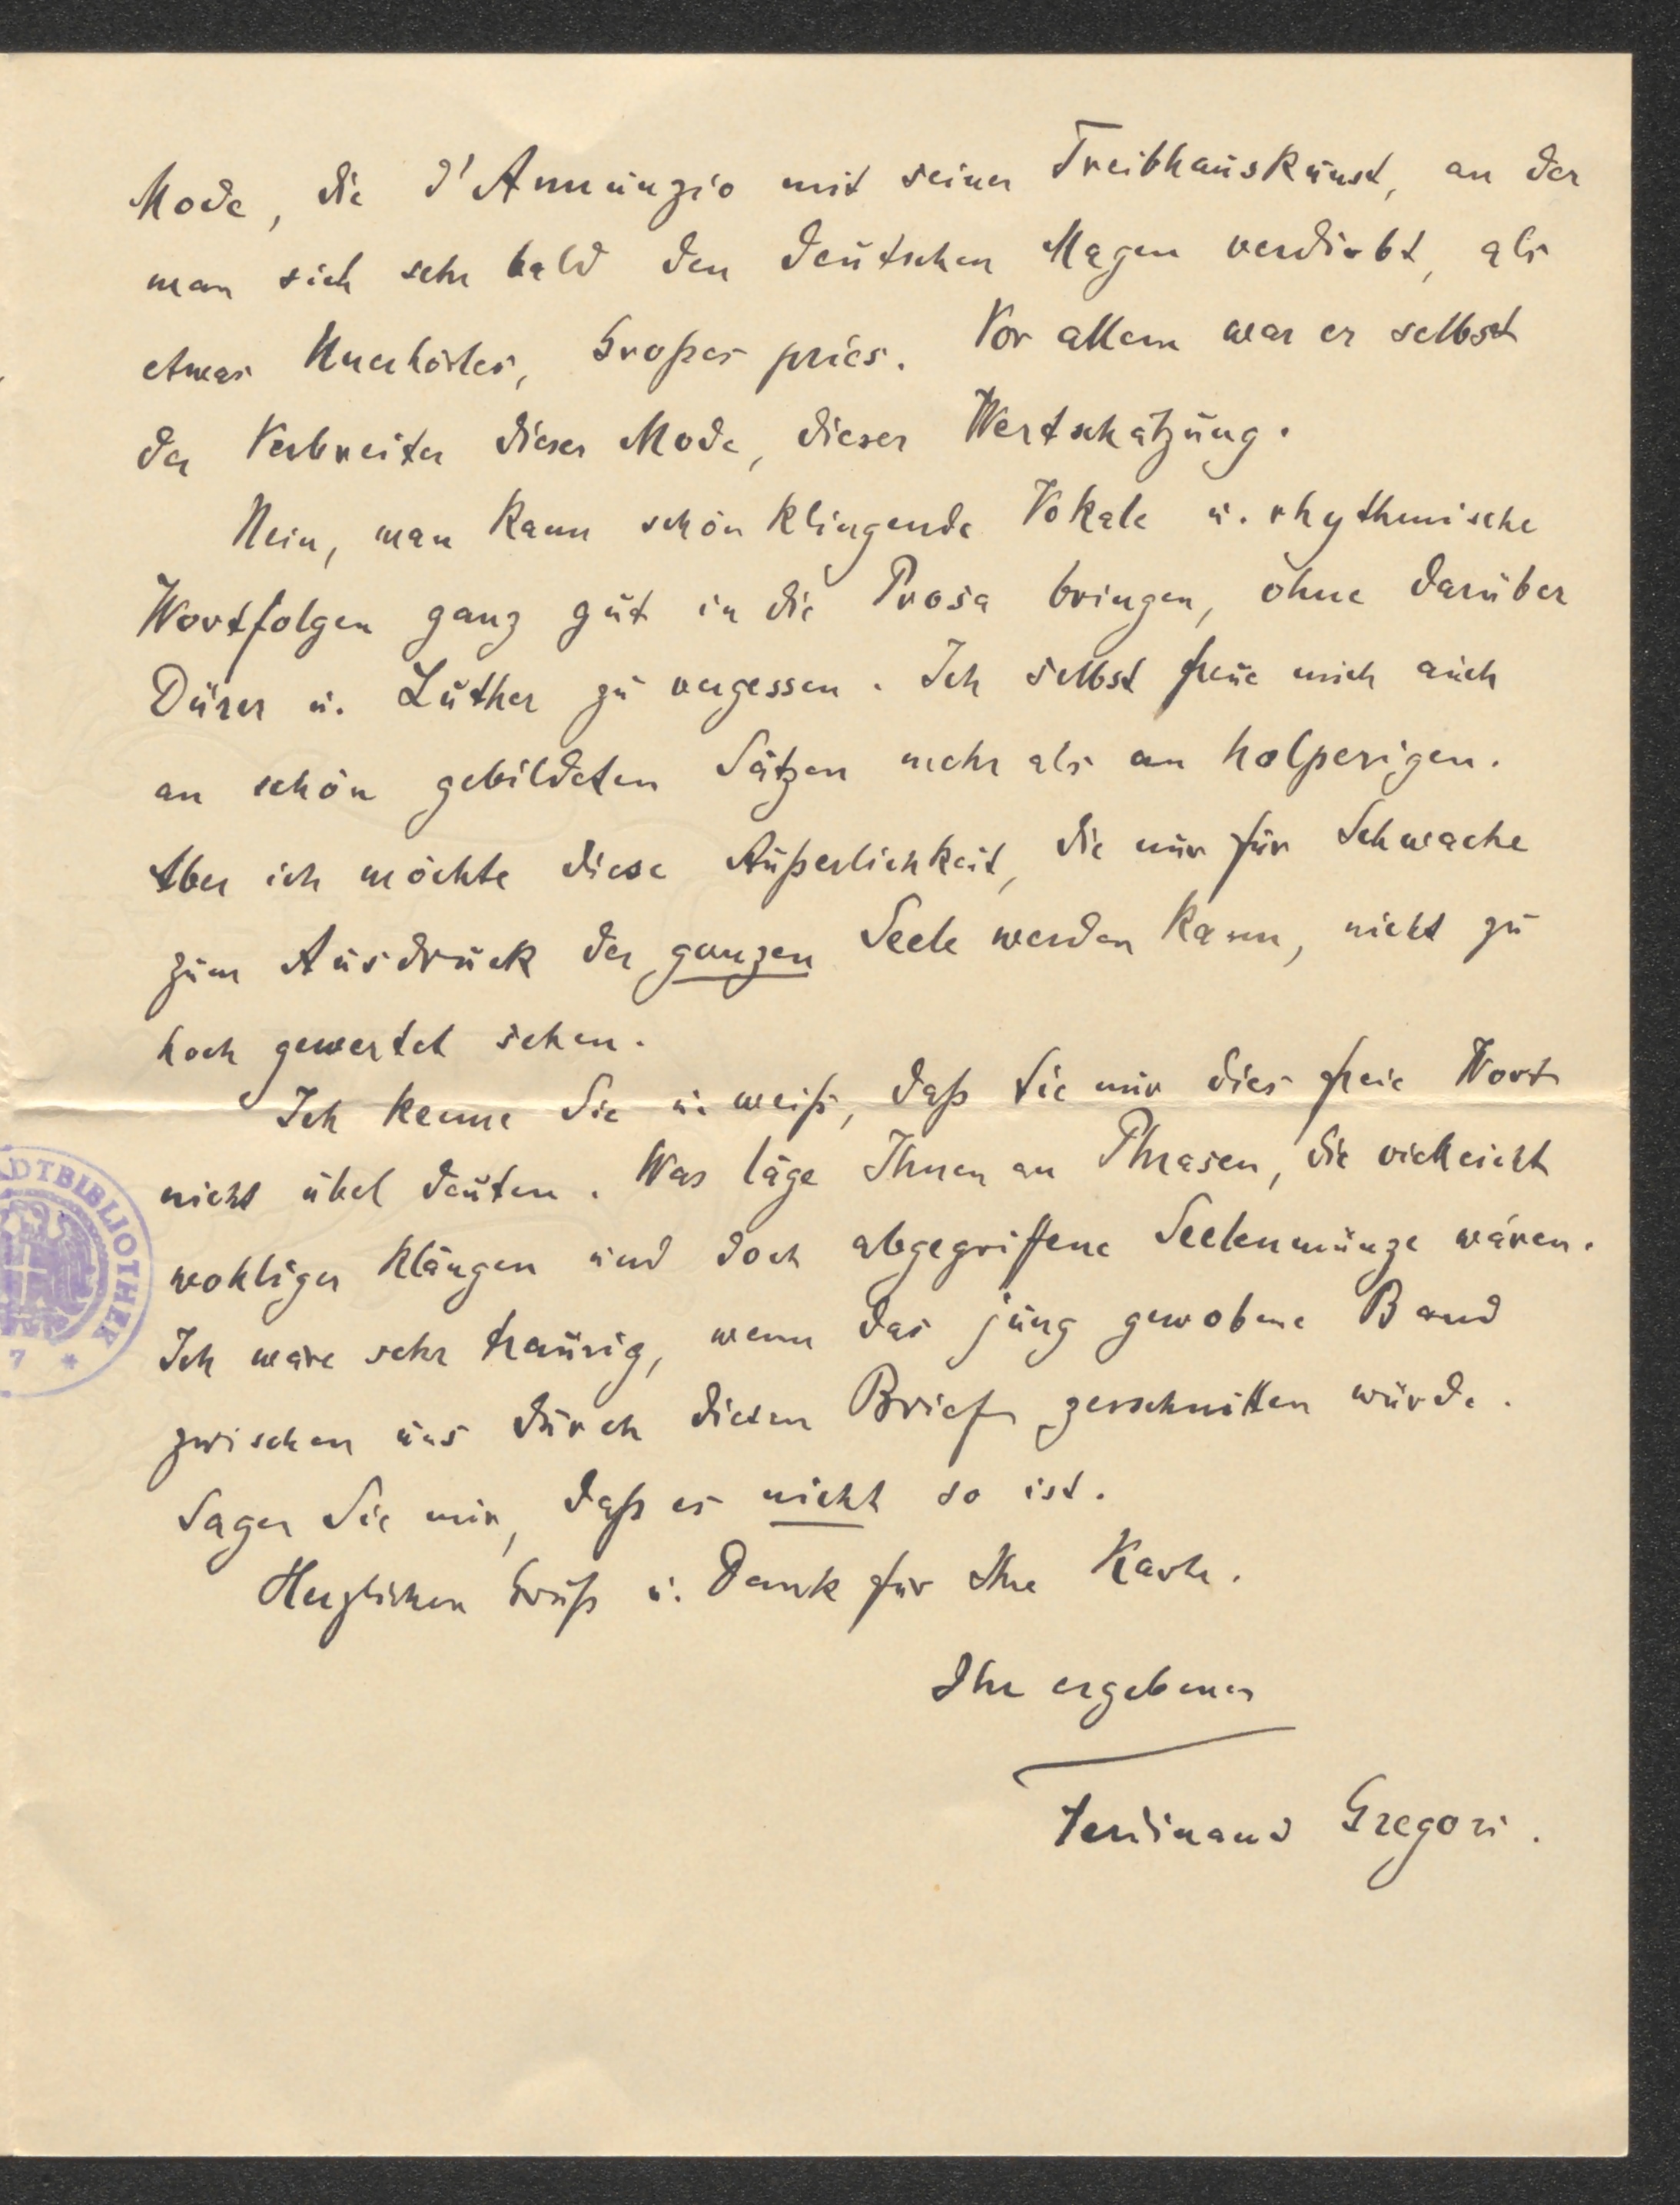 Mode, die d'Annunzio mit seiner Treibhauskunst, an der
man sich sehr bald den deutschen Magen verdirbt, als
etwas Unerhörtes, Großes pries. Vor allem war er selbst
der Verbreiter dieser Mode, dieser Wertschätzung.
Nein, man kann schön klingende Vokale u. rhythmische
Wortfolgen ganz gut in die Prosa bringen, ohne darüber
Dürer u. Luther zu vergessen. Ich selbst freue mich auch
an schön gebildeten Sätzen mehr als an holperigen.
Aber ich möchte diese Äußerlichkeit, die nur für Schwache
zum Ausdruck der ganzen Seele werden kann, nicht zu
hoch gewertet sehen.
Ich kenne Sie u. weiß, daß Sie mir dies freie Wort
nicht übel deuten. Was läge Ihnen an Phrasen, die vielleicht
wohliger klängen und doch abgegriffene Seelenmünze wären.
Ich wäre sehr traurig, wenn das jung gewobene Band
zwischen uns durch diesen Brief zerschnitten würde.
Sagen Sie mir, daß es nicht so ist.
Herzlichen Gruß u. Dank für Ihre Karte.
Ihr ergebener
Ferdinand Gregori.
ADTBIBLIOTHEK
7 *